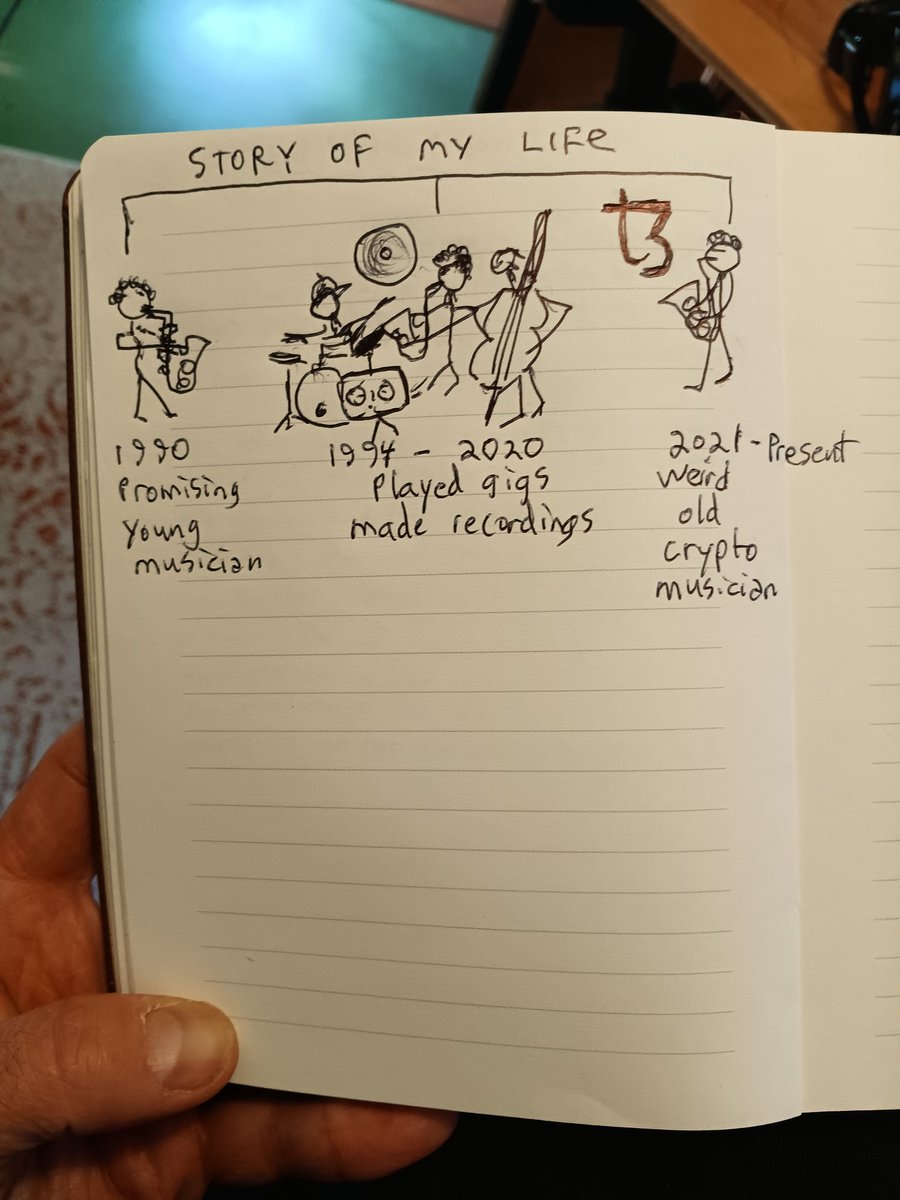 STORY OF MY LIFE
ꜩ
6
1990
Promising
Young
musician
1994 - 2020
Played gigs
made recordings
2021 - Present
weird
old
crypto
musician